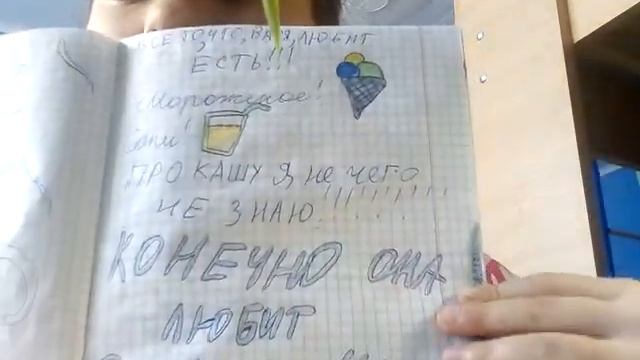 ВСЕ ТО, ЧТО, ВАЯ, ЛЮБИТ
ЕСТЬ!!!
Мороженое!
ПРО КАШУ Я не чего
НЕ ЗНАЮ!!!!!!!!
КОНЕЧНО ОНА
ЛЮБИТ